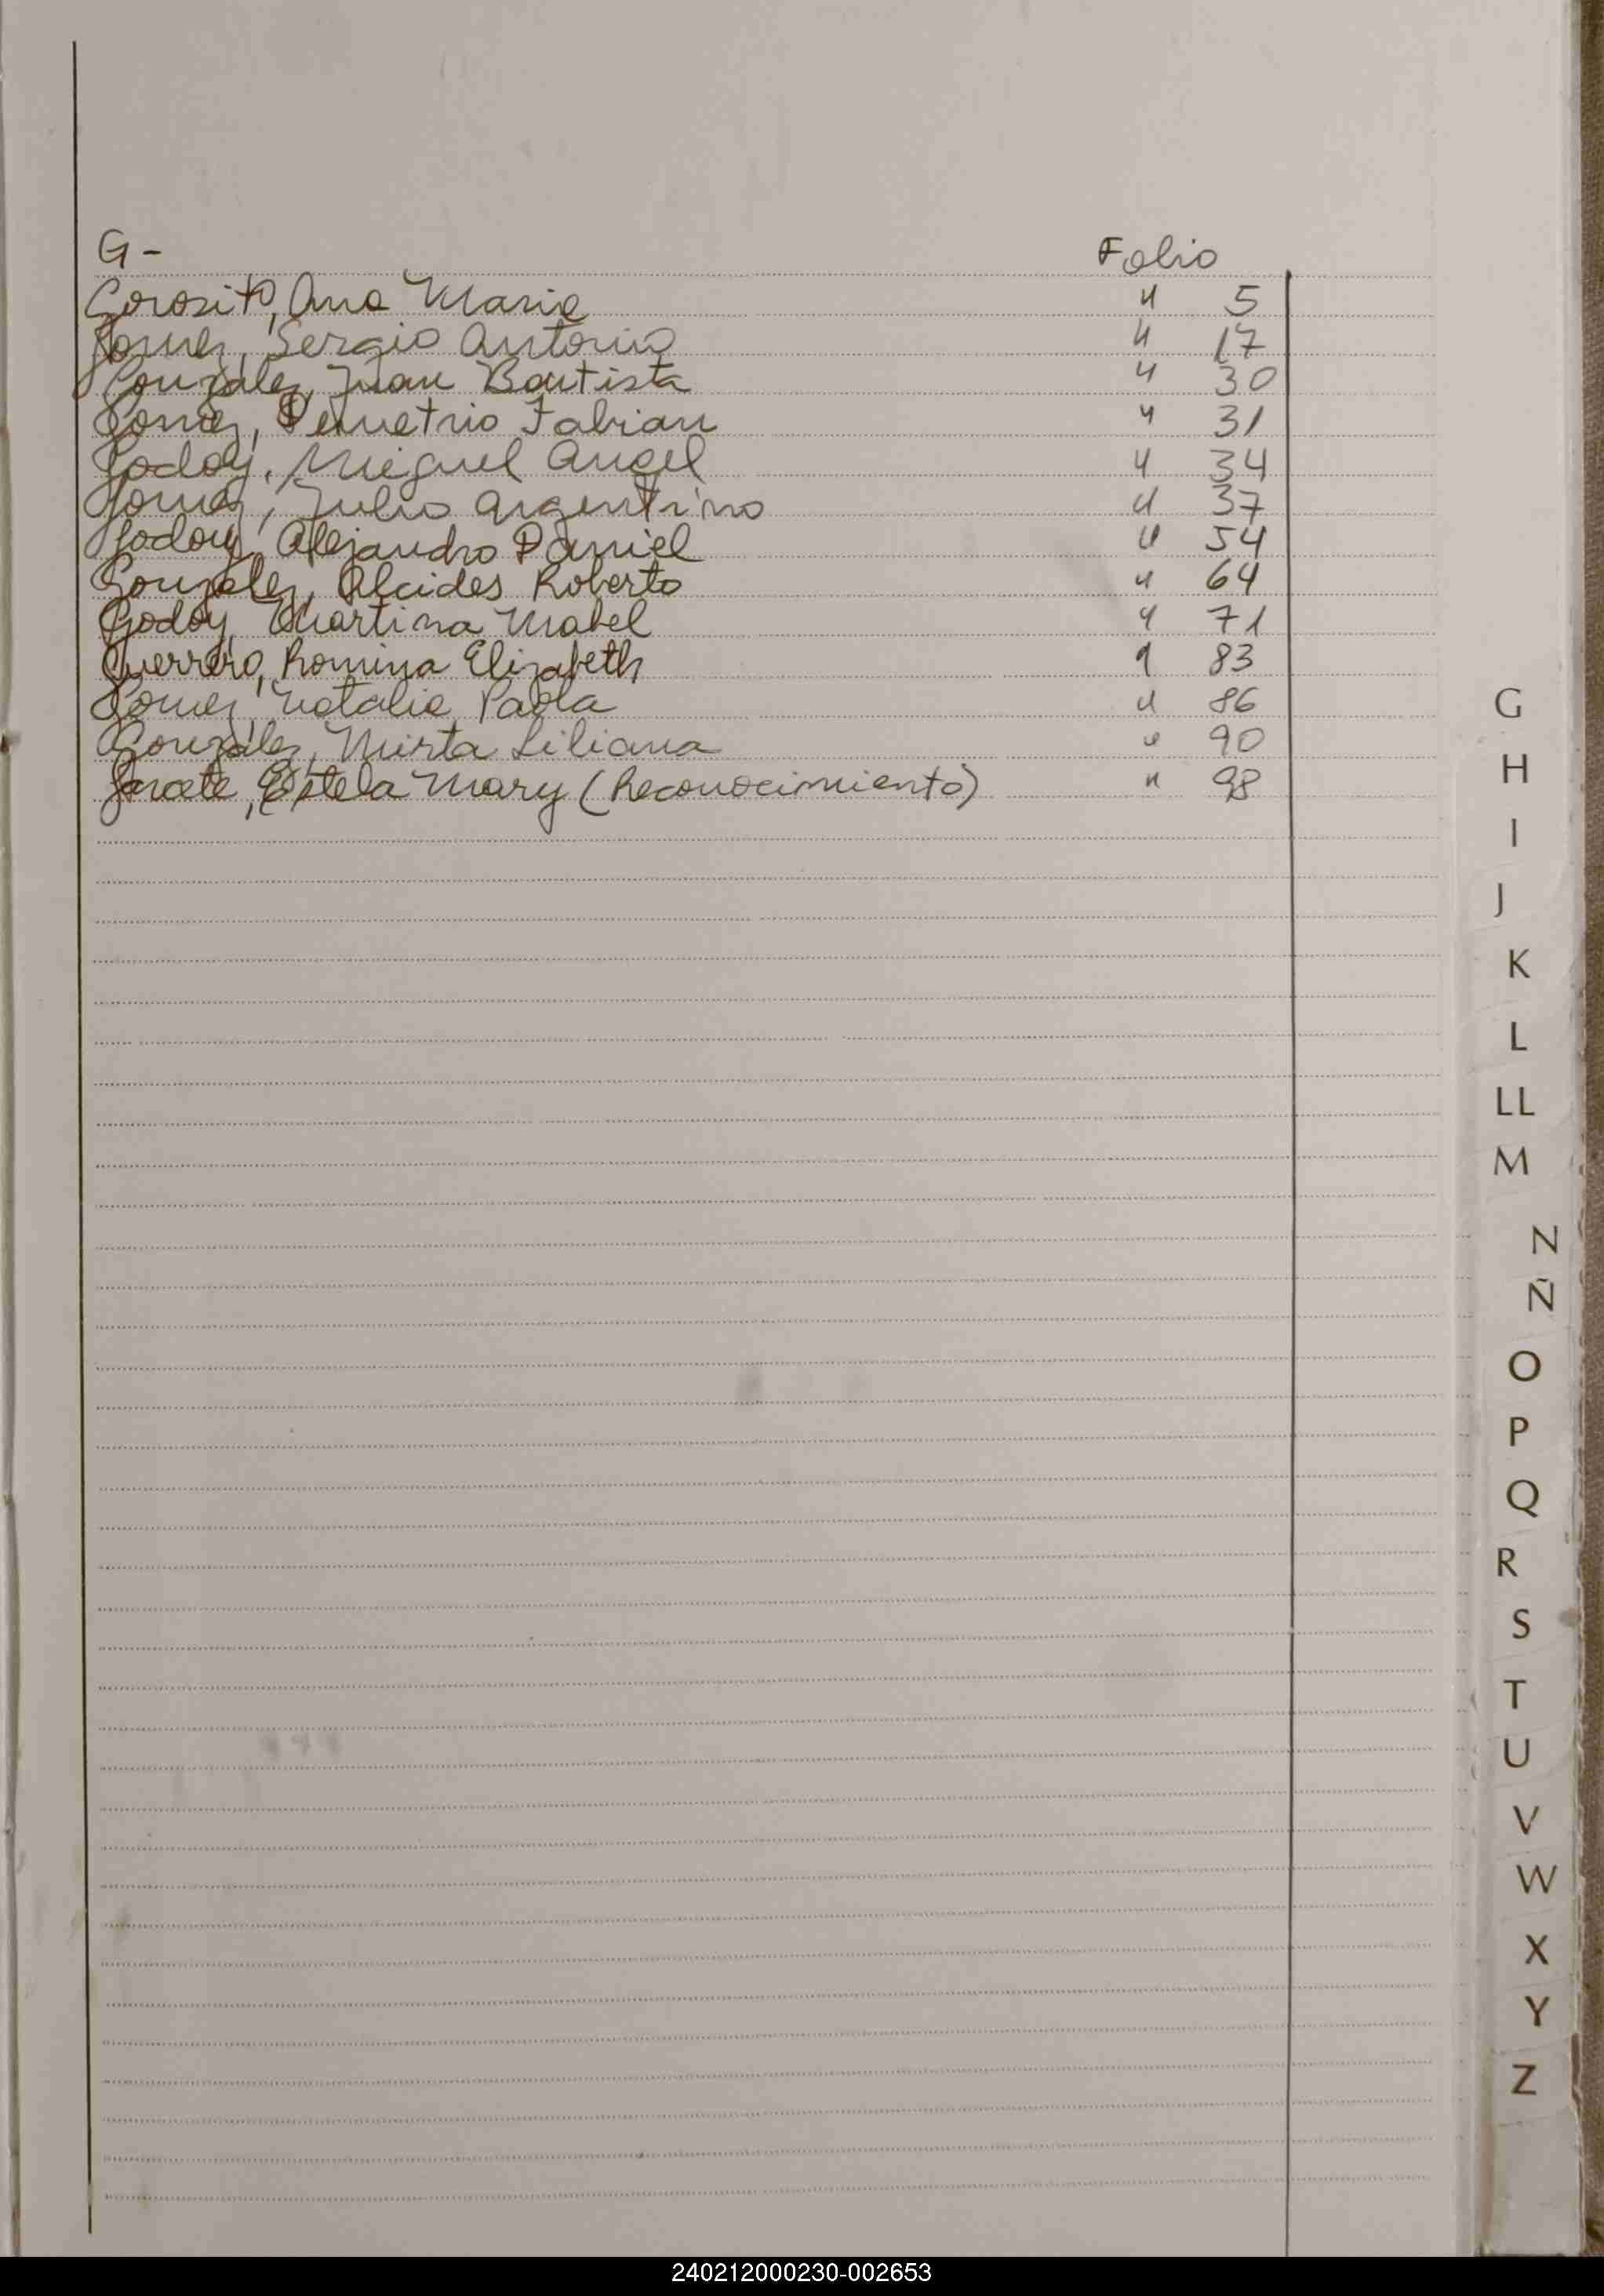 G - Folio
Gorosito, Ana Maria " 5
Gomez, Sergio Antonio " 17
González, Juan Bautista " 30
Gomez, Demetrio Fabian " 31
Godoy, Miguel Angel " 34
Gomez, Julio Argentino " 37
Godoy, Alejandro Daniel " 54
Gonzalez, Alcides Roberto " 64
Godoy, Martina Mabel " 71
Guerrero, Romina Elizabeth " 83
Gomez, Natalia Paola " 86
González, Mirta Liliana " 90
Garate, Estela Mary (Reconocimiento) " 98
G
H
I
J
K
L
LL
M
N
Ñ
O
P
Q
R
S
T
U
V
W
X
Y
Z
240212000230-002653